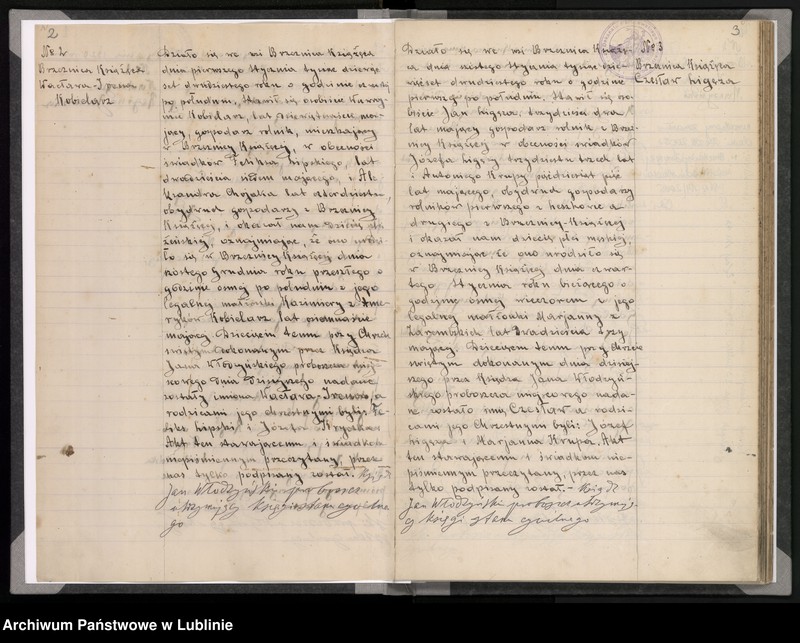 2
No 2
Brzeźnica Książęca
Wacława-Irena
Kobielarz
Działo się we wsi Brzeźnica Książęca
dnia pierwszego stycznia tysiąc dziewięć
set dwudziestego roku o godzinie
po południu, Stawił się osobiście
Kobielarz, lat
jący, gospodarz rolnik, mieszkający
w Brzeźnicy Książęcej, w obecności
świadków Feliksa Lipskiego, lat
mającego, i Ale
ksandra lat czterdzieści,
obydwóch gospodarzy z Brzeźnicy
Książęcej, i okazał nam dziecię płci
żeńskiej, oznajmiając, że ono urodzi
ło się w Brzeźnicy Książęcej dnia
szóstego Grudnia roku przeszłego o
godzinie ósmej po południu z jego
legalnej małżonki Kazimiery z
Kobielarz lat
mającej. Dziecięciu temu przy Chrzcie
świętym dokonanym przez Księdza
Jana Włodzyńskiego proboszcza miej
scowego dnia dzisiejszego nadane
zostały imiona Wacława-Irena, a
rodzicami jego chrzestnymi byli: Fe
liks Lipski i Józefa
Akt ten stawającemu i świadkom
niepiśmiennym przeczytany, przez
nas tylko podpisany został. Ksiądz
Jan Włodzyński proboszcz
utrzymujący księgi stanu cywilne
go
3
No 3
Brzeźnica Książęca
Czesław Ligęza
Działo się we wsi Brzeźnica Książę
ca dnia szóstego stycznia tysiąc dzie
więćset dwudziestego roku o godzinie
pierwszej po południu. Stawił się oso
biście Jan Ligęza, trzydzieści dwa
lat mający gospodarz rolnik z Brzeź
nicy Książęcej w obecności świadków
Józefa Ligęzy trzydzieści trzech lat
i Antoniego Krupy pięćdziesiąt pięć
lat mającego, obydwóch gospodarzy
rolników pierwszego z a
drugiego z Brzeźnicy-Książęcej
i okazał nam dziecię płci męskiej,
oznajmiając że ono urodziło się
w Brzeźnicy Książęcej dnia czwar
tego stycznia roku bieżącego o
godzinie ósmej wieczorem z jego
legalnej małżonki Marjanny z
lat dwadzieścia trzy
mającej. Dziecięciu temu przy Chrzcie
świętym dokonanym dnia dzisiej
szego przez Księdza Jana Włodzyń
skiego proboszcza miejscowego nada
ne zostało imię Czesław a rodzi
cami jego chrzestnymi byli: Józef
Ligęza i Marjanna Krupa. Akt
ten stawającemu i świadkom nie
piśmiennym przeczytany, przez nas
tylko podpisany został.- Ksiądz
Jan Włodzyński proboszcz utrzymują
cy księgi stanu cywilnego
Archiwum Państwowe w Lublinie